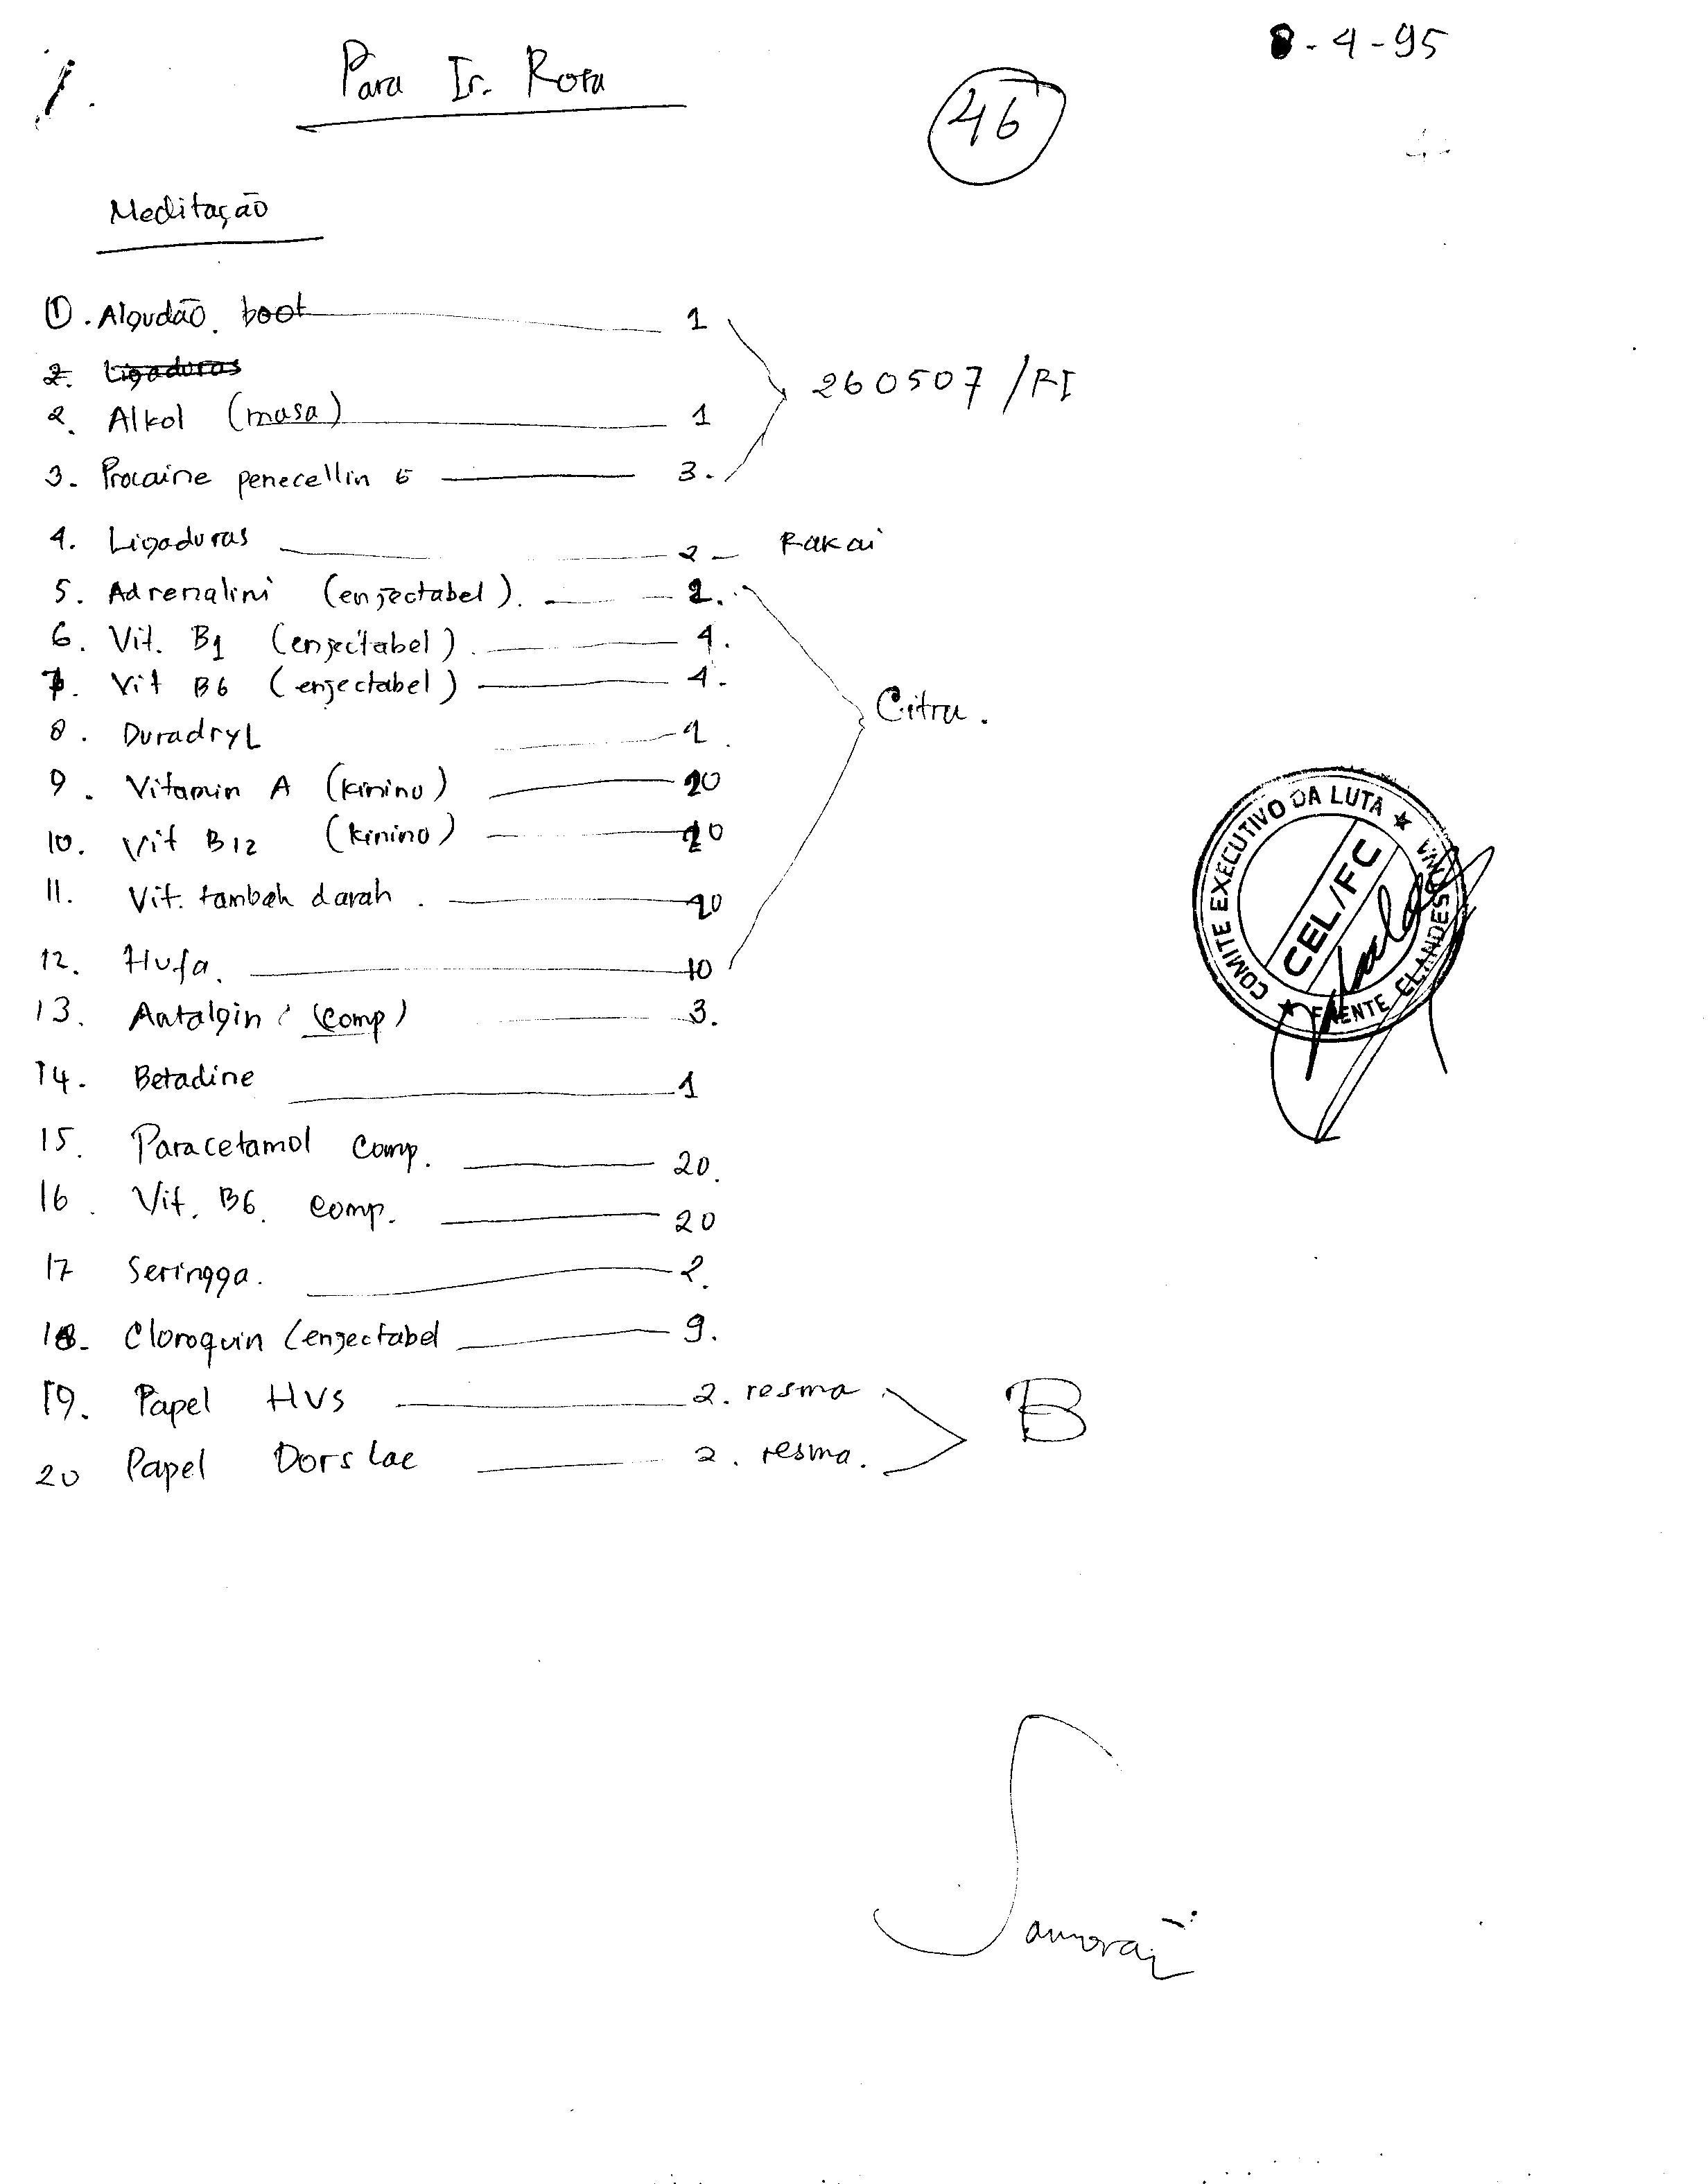 8-4-95
1.
Para Ir. Rosa
46
Meditação
1. Algudão. boot 1
2. Ligaduras
2. Alkol (masa) 1
3. Procaine penecellin G 3.
260507/RI
4. Ligaduras 2 - Rakai
5. Adrenalini (enjectabel). 2.
6. Vit. B1 (enjectabel). 4.
7. Vit B6 (enjectabel) 4.
8. Duradryl 1.
9. Vitamin A (kinino) 20
10. Vit B12 (kinino) 20
11. Vit. tambah darah. 20
12. Hufa. 10
Citru.
13. Antalgin (comp) 3.
14. Betadine 1
15. Paracetamol Comp. 20.
16. Vit. B6. comp. 20
17 Seringga. 2.
18. Cloroquin (enjectabel 9.
19. Papel HVS 2. resma
20 Papel Dors lae 2. resma.
B
COMITE EXECUTIVO DA LUTA ★ FRENTE CLANDESTINA ★
CEL/FC
Samorai